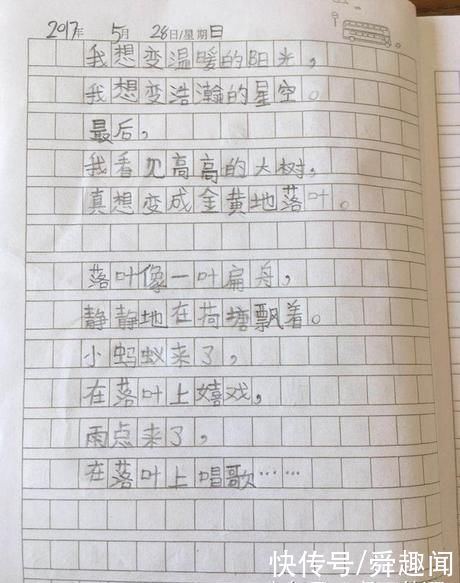 2017年 5月 28日/星期日
我想变温暖的阳光，
我想变浩瀚的星空。
最后，
我看见高高的大树，
真想变成金黄地落叶。
落叶像一叶扁舟，
静静地在荷塘飘着。
小蚂蚁来了，
在落叶上嬉戏，
雨点来了，
在落叶上唱歌……
快传号/舜趣闻